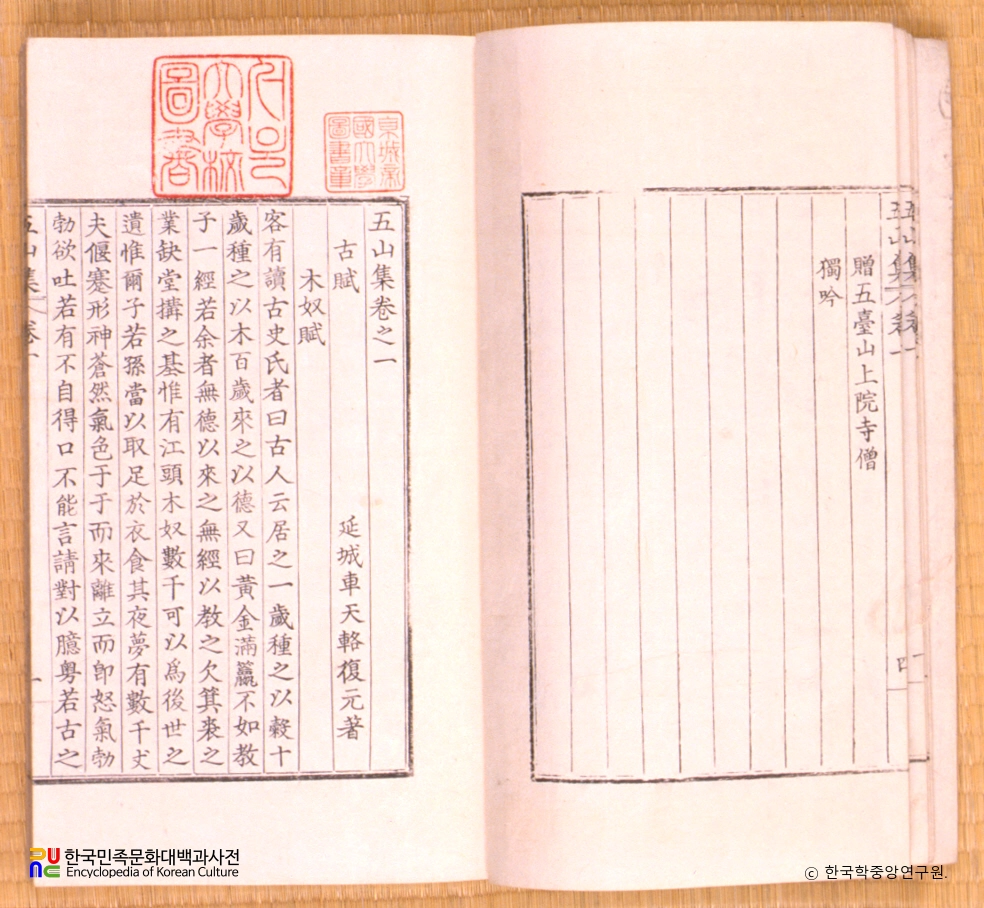 五山集 卷一
四
贈五臺山上院寺僧
獨吟
京城帝國大學圖書章
大學校圖書
五山集卷之一
古賦 延城車天輅復元著
木奴賦
客有讀古史氏者曰古人云居之一歲種之以穀十
歲種之以木百歲來之以德又曰黃金滿籯不如教
子一經若余者無德以來之無經以教之欠箕裘之
業缺堂搆之基惟有江頭木奴數千可以爲後世之
遺惟爾子若孫當以取足於衣食其夜夢有數千丈
夫偃蹇形神蒼然氣色于于而來離立而卽怒氣勃
勃欲吐若有不自得口不能言請對以臆粤若古之
五山集 卷一
一
한국민족문화대백과사전
Encyclopedia of Korean Culture
ⓒ 한국학중앙연구원.